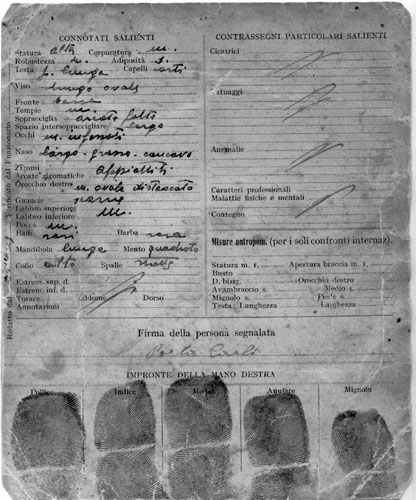 CONNOTATI SALIENTI
Statura alta Corporatura m.
Robustezza Adiposità s.
Testa p. lunga Capelli
Viso lungo ovale
Fronte bassa
Tempie m.
Sopracciglia arcate folte
Spazio intersopraccigliare largo
Occhi m. infossati
Naso largo-grosso-concavo
Zigomi
Arcate zigomatiche appiattiti
Orecchio destro m. ovale distaccato
Guancie
Labbro superiore
Labbro inferiore m.
Bocca m.
Baffi rasi Barba rasa
Mandibola lunga Mento quadrato
Collo alto Spalle
Estrem. sup. d.
Estrem. inf. d.
Torace Addome Dorso
Annotazioni
CONTRASSEGNI PARTICOLARI SALIENTI
Cicatrici
Tatuaggi
Anomalie
Caratteri professionali
Malattie fisiche e mentali
Contegno
Misure antropom. (per i soli confronti internaz.)
Statura m. 1. Apertura braccia m. 1.
Busto Orecchio destro
D. bizig. Medio s.
Avambraccio s. Piede s.
Mignolo s. Larghezza
Testa: Lunghezza
Firma della persona segnalata
IMPRONTE DELLA MANO DESTRA
Pollice Indice Medio Anulare Mignolo